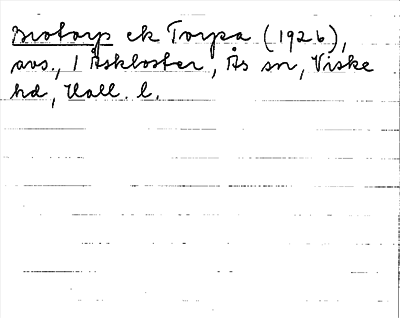 Brotorp ek Torpa (1926),
avs., 1 Åskloster, Ås sn, Viske
hd, Hall. l.